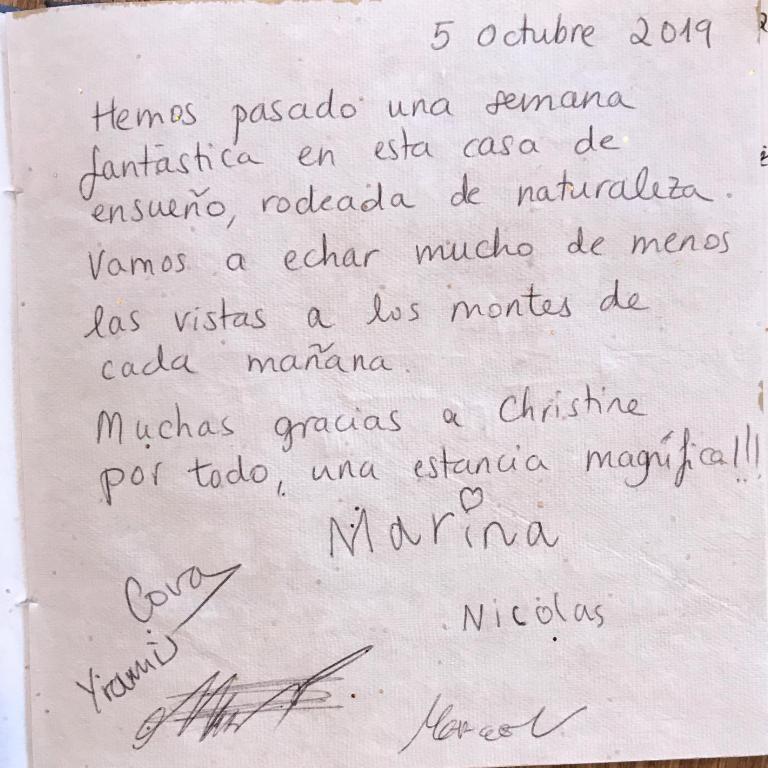 5 Octubre 2019
Hemos pasado una semana
fantástica en esta casa de
ensueño, rodeada de naturaleza.
Vamos a echar mucho de menos
las vistas a los montes de
cada mañana.
Muchas gracias a Christine
por todo, una estancia magnífica!!!
Marina
Cova
Nicolas
Yrami